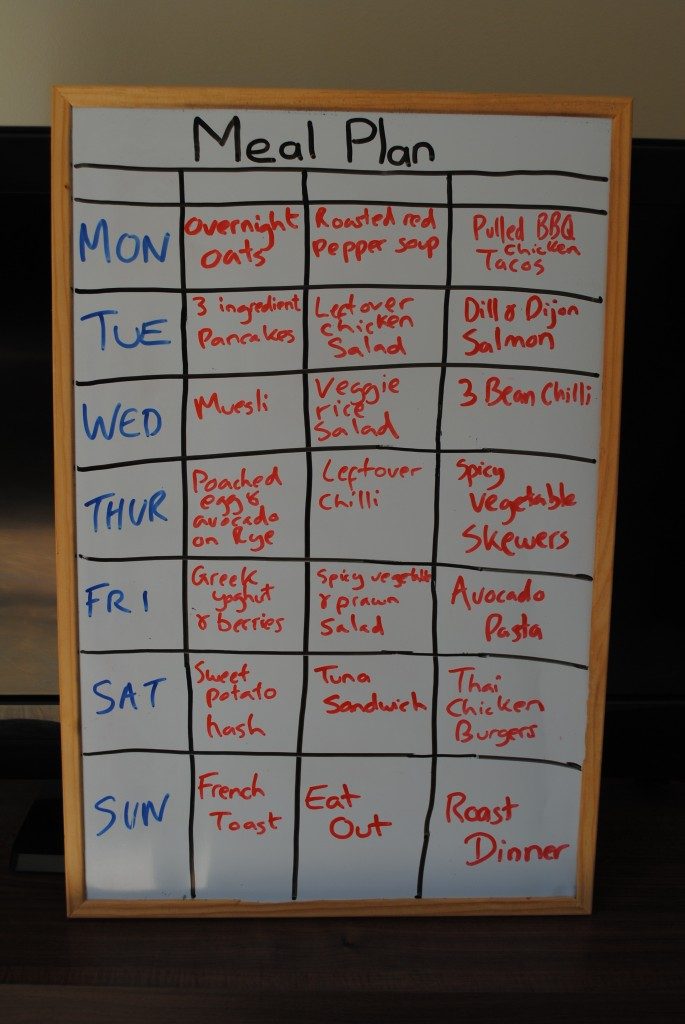 Meal Plan
MON
Overnight
oats
Roasted red
pepper soup
Pulled BBQ
Chicken
Tacos
TUE
3 ingredient
Pancakes
Leftover
chicken
Salad
Dill & Dijon
Salmon
WED
Muesli
Veggie
rice
Salad
3 Bean Chilli
THUR
Poached
egg &
avocado
on Rye
Leftover
Chilli
Spicy
Vegetable
Skewers
FRI
Greek
yoghut
& berries
Spicy vegetable
& prawn
Salad
Avocado
Pasta
SAT
Sweet
potato
hash
Tuna
Sandwich
Thai
Chicken
Burgers
SUN
French
Toast
Eat
Out
Roast
Dinner